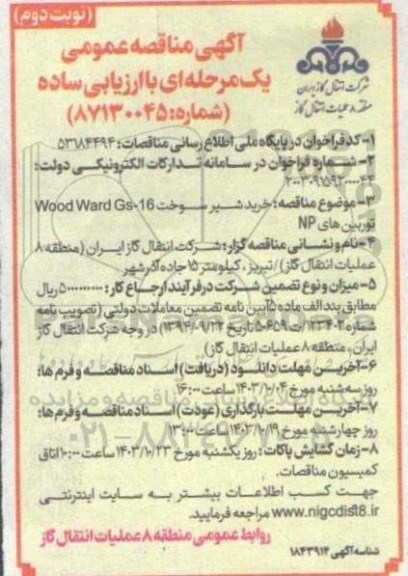 (نوبت دوم)
شرکت انتقال گاز ایران
منطقه ۸ عملیات انتقال گاز
آگهی مناقصه عمومی
یک مرحله‌ای با ارزیابی ساده
(شماره: ۸۷۱۳۰۰۴۵)
۱- کد فراخوان در پایگاه ملی اطلاع رسانی مناقصات: ۵۳۱۸۴۴۹۴
۲- شماره فراخوان در سامانه تدارکات الکترونیکی دولت:
۲۰۰۳۰۹۱۵۹۲۰۰۰۰۴۴
۳- موضوع مناقصه: خرید شیر سوخت Wood Ward Gs-16
توربین های NP
۴- نام و نشانی مناقصه گزار: شرکت انتقال گاز ایران (منطقه ۸
عملیات انتقال گاز) / تبریز، کیلومتر ۱۵ جاده آذرشهر
۵- میزان و نوع تضمین شرکت در فرآیند ارجاع کار: ریال
مطابق بند الف ماده ۵ آیین نامه تضمین معاملات دولتی (تصویب نامه
شماره ۱۲۳۴۰۲/ت۵۰۶۵۹ تاریخ ۱۳۹۴/۰۹/۲۲) در وجه شرکت انتقال گاز
ایران، منطقه ۸ عملیات انتقال گاز)
۶- آخرین مهلت دانلود (دریافت) اسناد مناقصه و فرم ها:
روز سه شنبه مورخ ۱۴۰۳/۱۰/۰۴ ساعت ۱۶:۰۰
۷- آخرین مهلت بارگذاری (عودت) اسناد مناقصه و فرم ها:
روز چهارشنبه مورخ ۱۴۰۳/۱۰/۱۹ ساعت ۱۳:۰۰
۸- زمان گشایش پاکات: روز یکشنبه مورخ ۱۴۰۳/۱۰/۲۳ ساعت ۱۰:۰۰ اتاق
کمیسیون مناقصات.
جهت کسب اطلاعات بیشتر به سایت اینترنتی
www.nigcdist8.ir مراجعه فرمایید.
روابط عمومی منطقه ۸ عملیات انتقال گاز
شناسه آگهی ۱۸۴۳۹۱۲